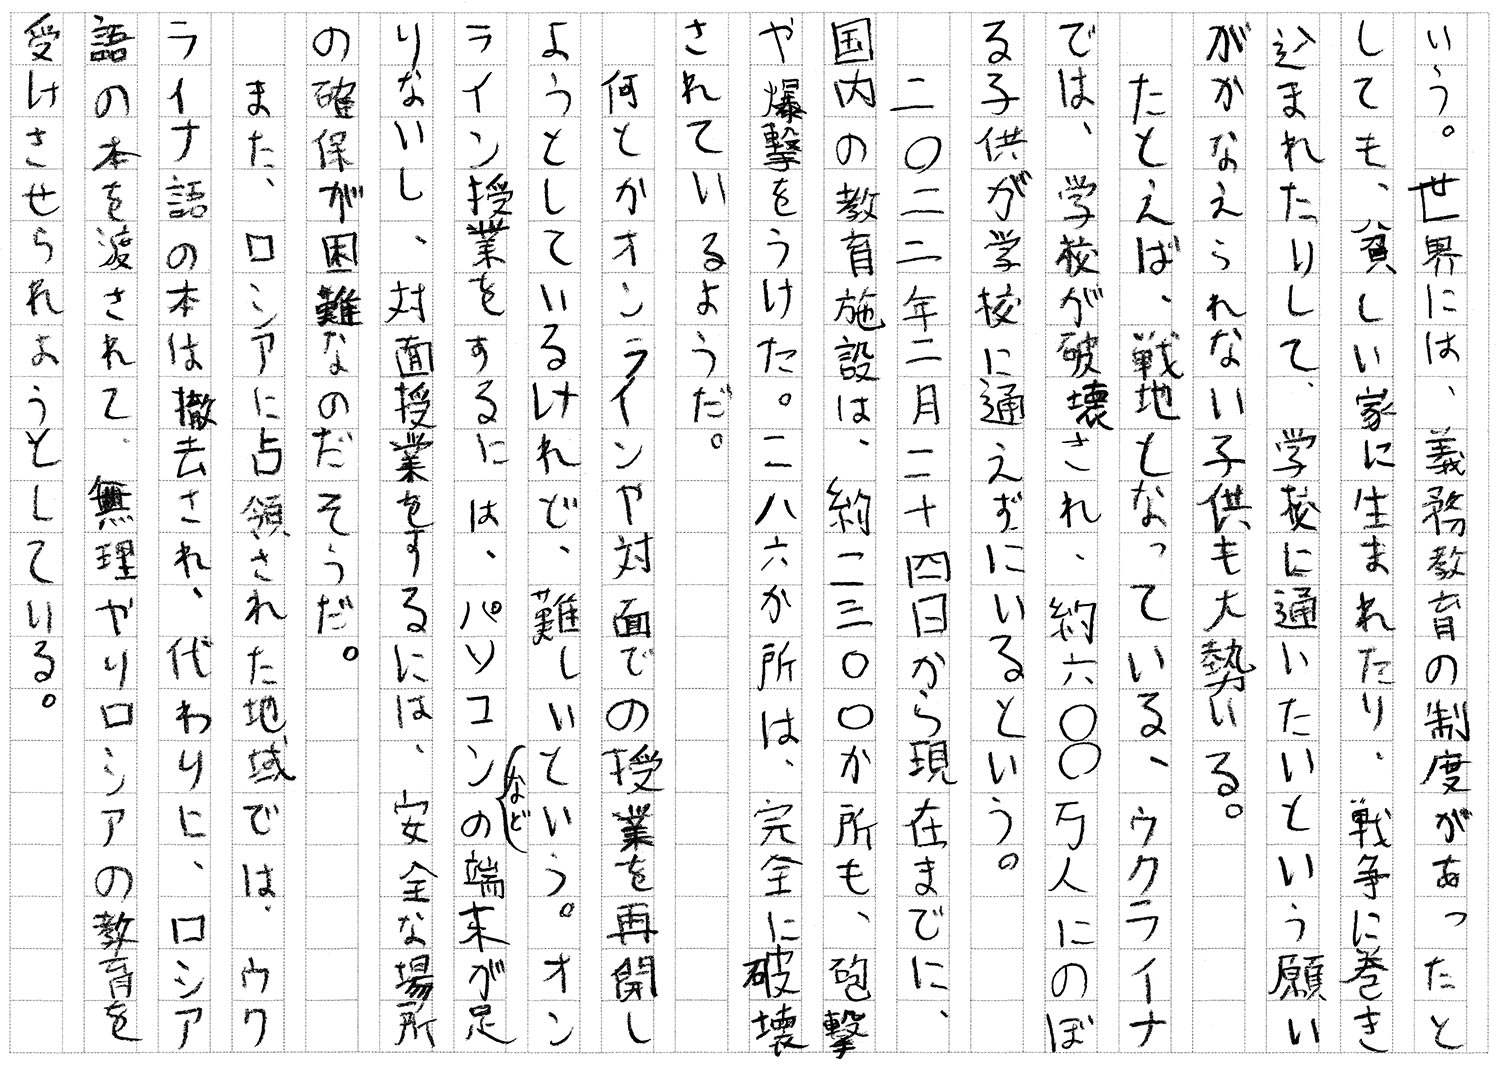 いう。世界には、義務教育の制度があったと
しても、貧しい家に生まれたり、戦争に巻き
込まれたりして、学校に通いたいという願い
がかなえられない子供も大勢いる。
たとえば、戦地となっている、ウクライナ
では、学校が破壊され、約六〇〇万人にのぼ
る子供が学校に通えずにいるという。
二〇二二年二月二十四日から現在までに、
国内の教育施設は、約二三〇〇か所も、砲撃
や爆撃をうけた。二八六か所は、完全に破壊
されているようだ。
何とかオンラインや対面での授業を再開し
ようとしているけれど、難しいという。オン
ライン授業をするには、パソコンなどの端末が足
りないし、対面授業をするには、安全な場所
の確保が困難なのだそうだ。
また、ロシアに占領された地域では、ウク
ライナ語の本は撤去され、代わりに、ロシア
語の本を渡されて、無理やりロシアの教育を
受けさせられようとしている。